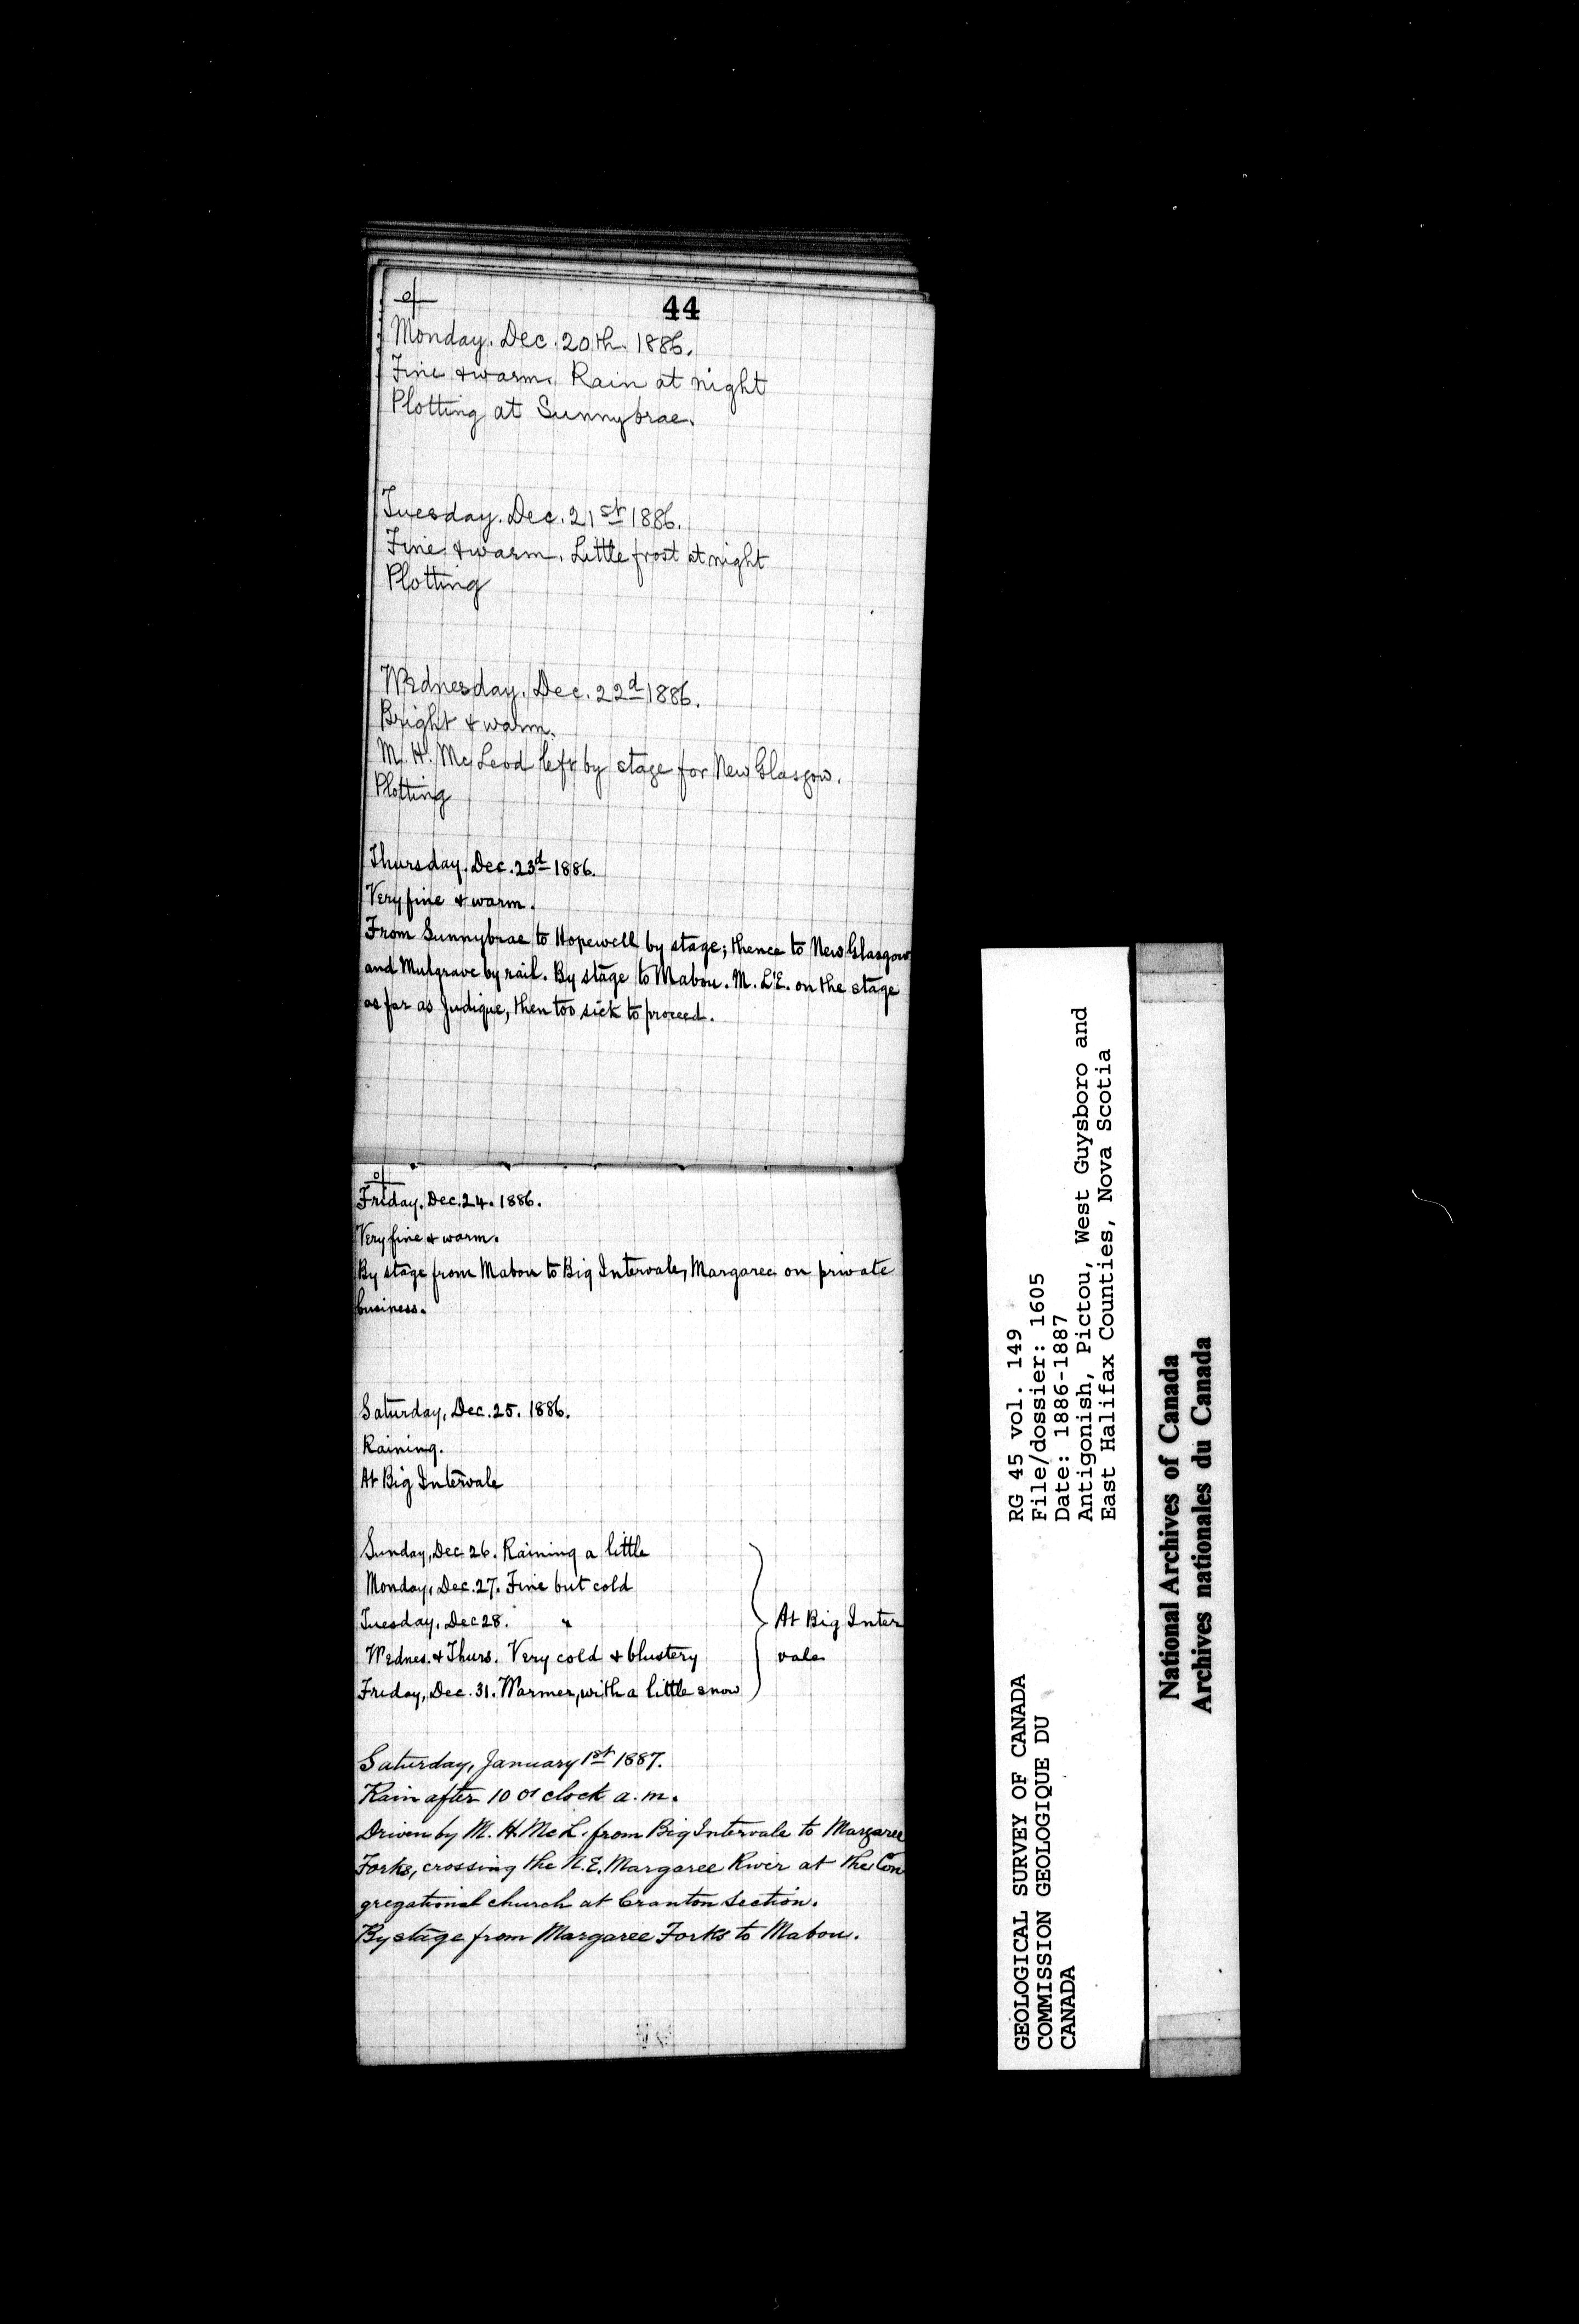 44
Monday. Dec. 20th. 1886.
Fine & warm. Rain at night
Plotting at Sunnybrae.
Tuesday. Dec. 21st 1886.
Fine & warm. Little frost at night
Plotting
Wednesday. Dec. 22d 1886.
Bright & warm.
M. H. McLeod left by stage for New Glasgow.
Plotting
Thursday. Dec. 23d 1886.
Very fine & warm.
From Sunnybrae to Hopewell by stage; thence to New Glasgow
and Mulgrave by rail. By stage to Mabou. M. on the stage
as far as Judique, then too sick to proceed.
Friday. Dec. 24. 1886.
Very fine & warm.
By stage from Mabou to Big Intervale, Margaree on private
business.
Saturday, Dec. 25. 1886.
Raining.
At Big Intervale
Sunday, Dec 26. Raining a little
Monday, Dec. 27. Fine but cold
Tuesday, Dec 28. "
Wednes. & Thurs. Very cold & blustery
Friday, Dec. 31. Warmer, with a little snow
At Big Inter
vale
Saturday, January 1st 1887.
Rain after 10 o'clock a.m.
Driven by M. H. McL. from Big Intervale to Margaree
Forks, crossing the N.E. Margaree River at the Con
gregational church at Cranton Section.
By stage from Margaree Forks to Mabou.
GEOLOGICAL SURVEY OF CANADA
COMMISSION GEOLOGIQUE DU
CANADA
RG 45 vol. 149
File/dossier: 1605
Date: 1886-1887
Antigonish, Pictou, West Guysboro and
East Halifax Counties, Nova Scotia
National Archives of Canada
Archives nationales du Canada